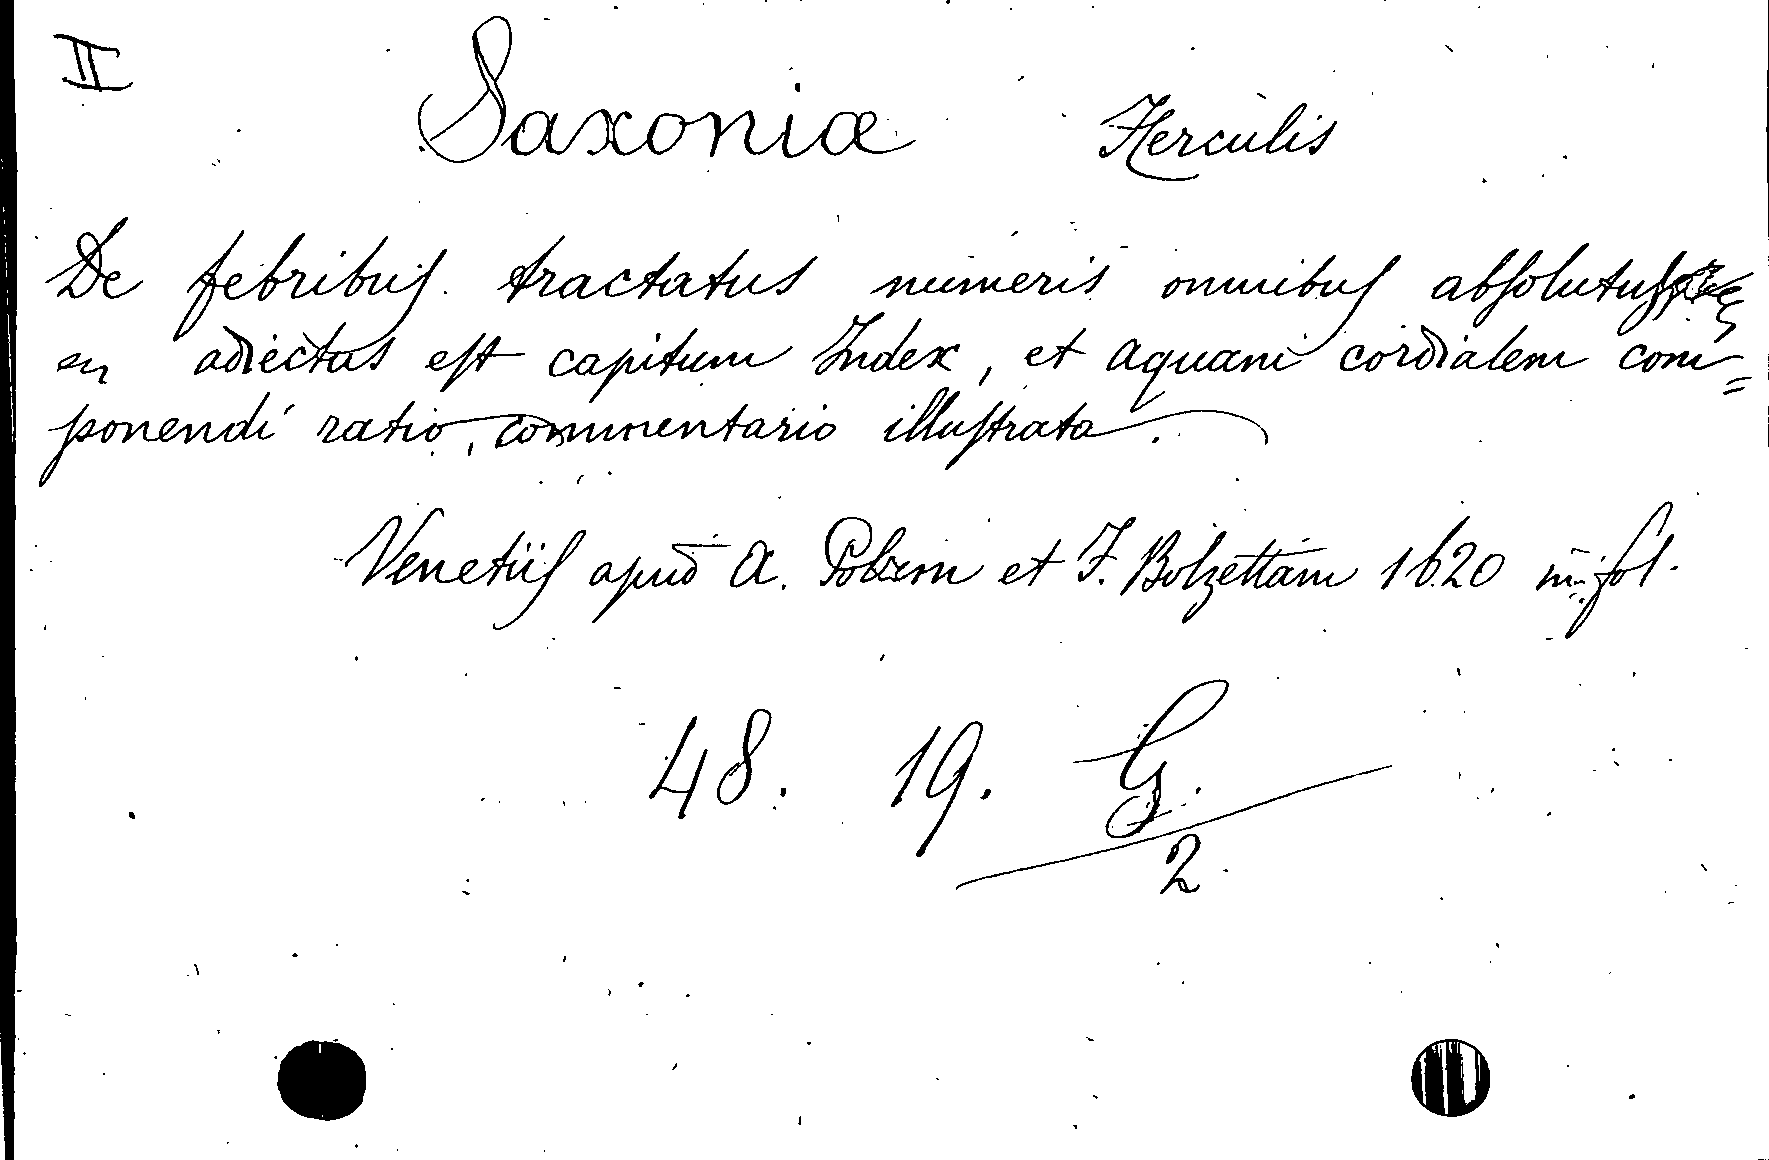 II
Saxoniæ Herculis
De febribus tractatus numeris omnibus absolutus
en adiectus est capitum Index, et aquam cordialem com=
ponendi ratio, commentario illustrata.
Venetiis apud A. Polum et F. Bolzettam 1620 in fol.
48. 19. G
2